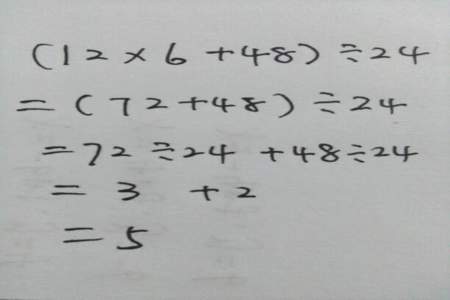 (12×6+48)÷24
=(72+48)÷24
=72÷24+48÷24
=3+2
=5